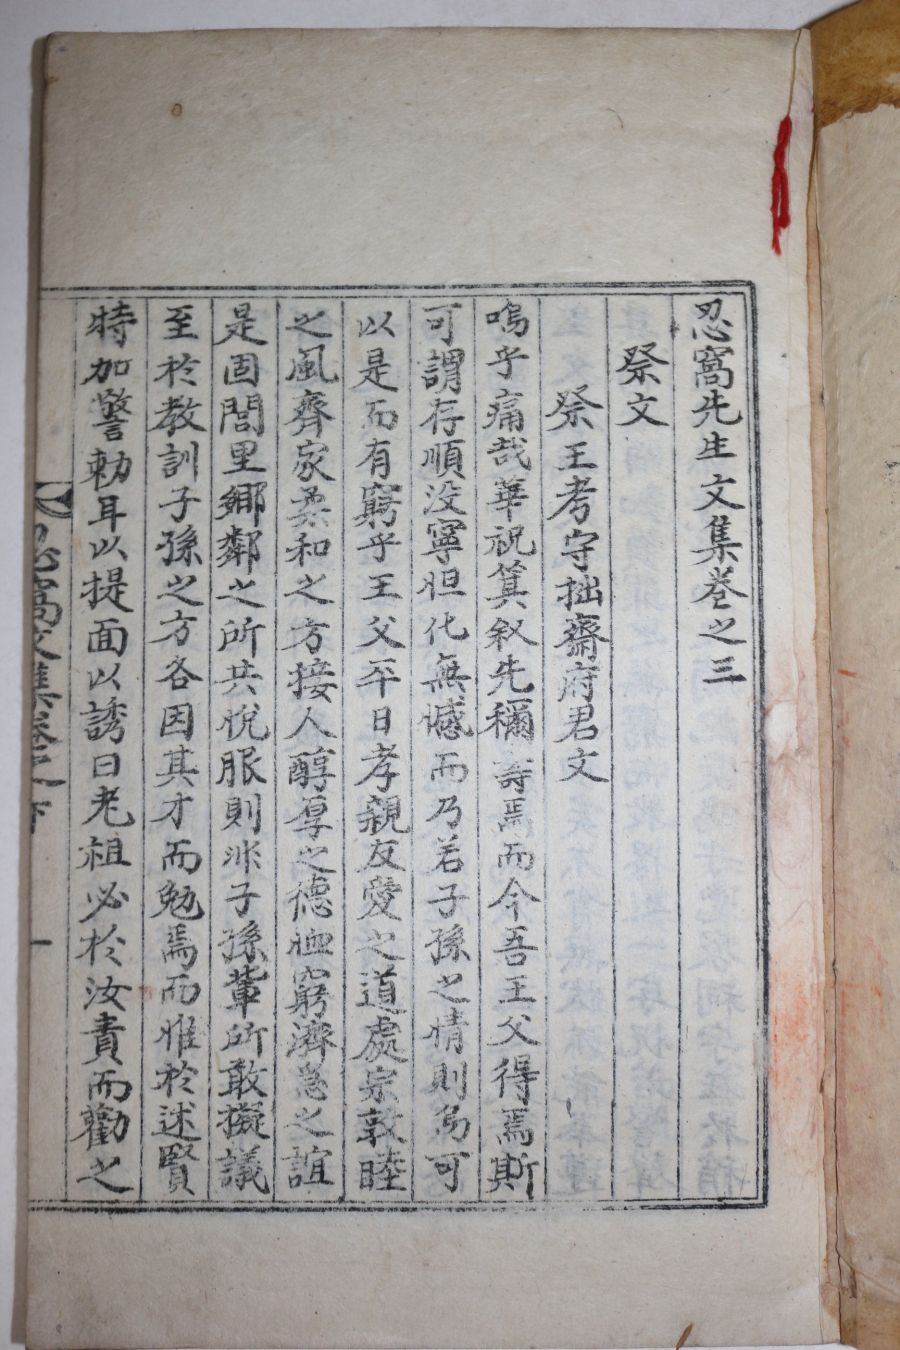 忍窩先生文集卷之三
祭文
祭王考守拙齋府君文
嗚乎痛哉華祝箕叙先稱壽焉而今吾王父得焉斯
可謂存順没寧怛化無憾而乃若子孫之情則烏可
以是而有窮乎王父平日孝親友愛之道處宗敦睦
之風齊家柔和之方接人醇厚之德恤窮濟急之誼
是固閭里鄉鄰之所共悅服則非子孫輩所敢擬議
至於教訓子孫之方各因其才而勉焉而惟於述賢
特加警勅耳以提面以誘曰老祖必於汝責而勸之
忍窩文集卷之三
一